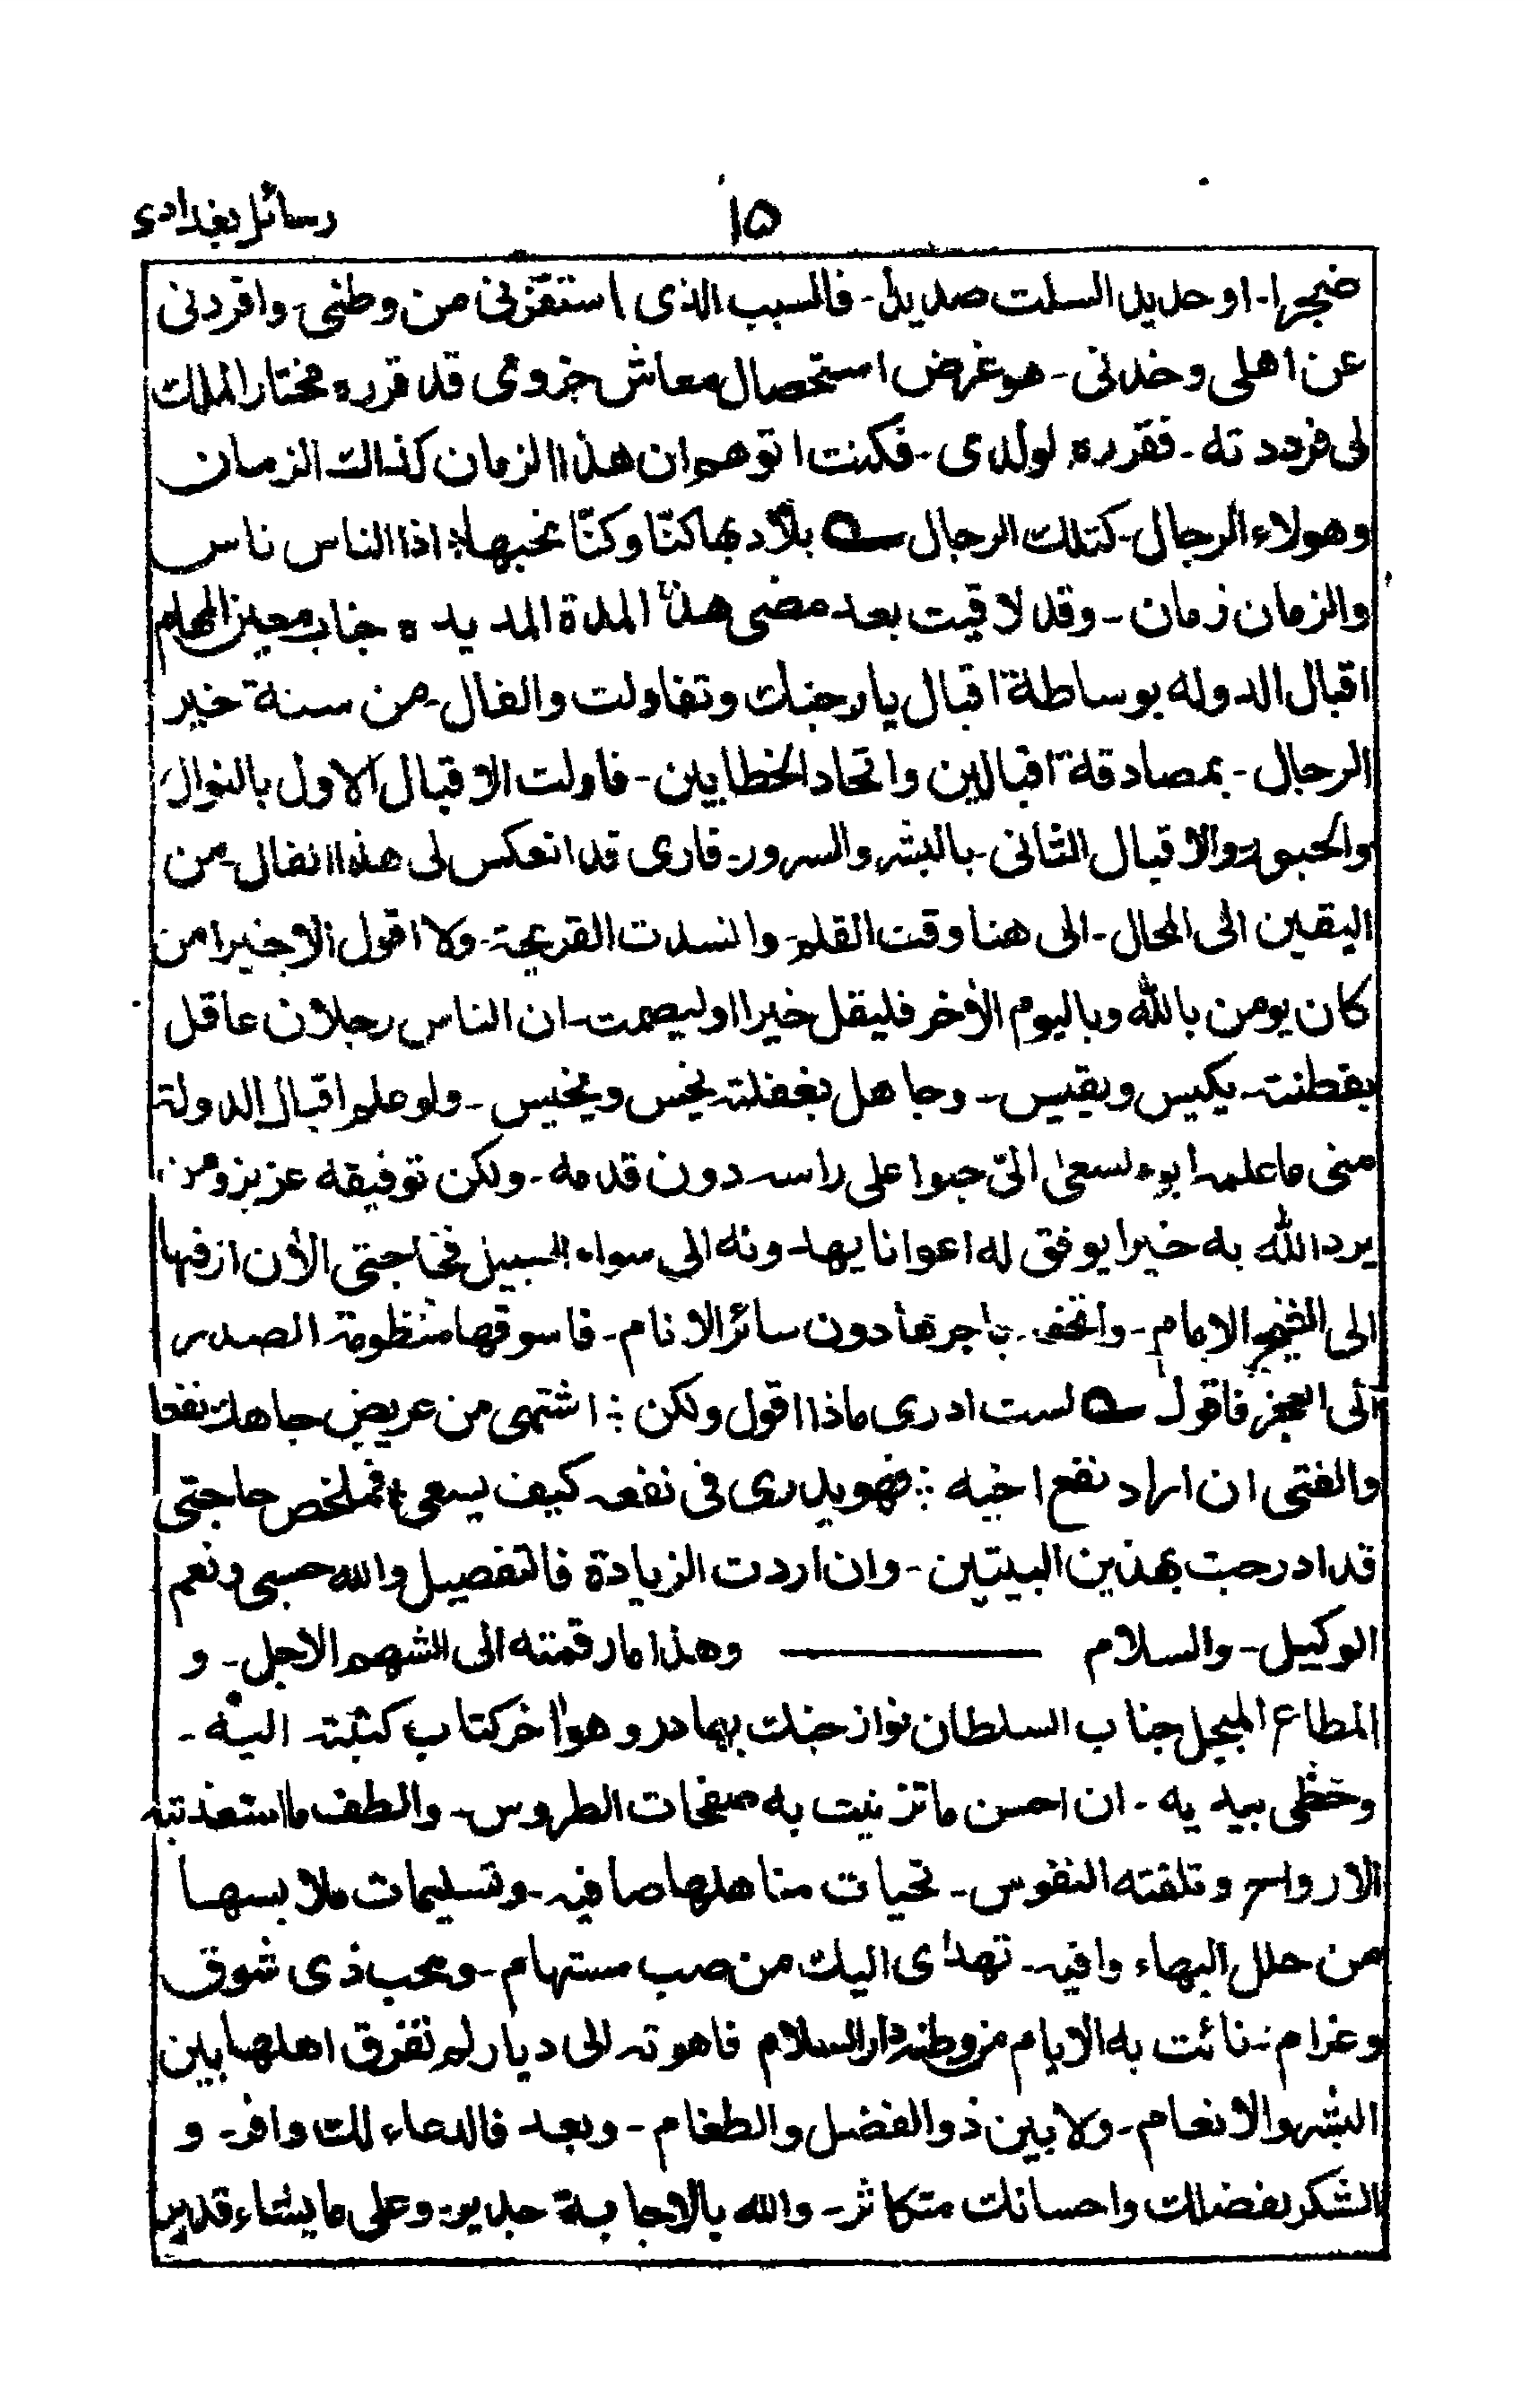 رسائل بغدادی
۱۵
ضجرا۔ او حديد السلت صديدا۔ فالسبب الذی استفزنی من وطنی۔ وافردنی
عن اهلی وخدنی۔ هو غرض استحصال معاش جزوی قد قرره مختار الملك
لی فرددته۔ فقرره لولدی۔ فكنت اتوهم ان هذا الزمان كذاك الزمان
وهولاء الرجال۔ كتلك الرجال بلاد بها كنّا وكنّا نحبها؛ اذا الناس ناس
والزمان زمان۔ وقد لاقيت بعد مضی هذا المدة المديده جناب معين المهام
اقبال الدوله بوساطة اقبال يار جنك وتفاولت والفال۔ من سنة خير
الرجال۔ بمصادقة اقبالين واتحاد الخطابين۔ فاولت الاقبال الاول بالنوال
والحبوة والاقبال الثانی۔ بالبشر والسرور۔ فاری قد انعكس لی هذا الفال۔ من
اليقين الی المحال۔ الی هنا وقت القلم۔ وانسدت القريحة۔ ولا اقول الا خيرا من
كان يومن بالله وباليوم الأخر فليقل خيرا اوليصمت۔ ان الناس رجلان عاقل
بفطنته۔ يكيس ويقيس۔ وجاهل بغفلته يخيس ويخيس۔ ولو علم اقبال الدولة
منی ما علمه ابوه لسعیٰ الیّ حبوا علی راسه دون قدمه۔ ولكن توفيقه عزيز ومن
يرد الله به خيرا يوفق له اعوانا يهدونه الی سواء السبيل فحاجتی الأن ازفها
الی الامام۔ واتحف باجرها دون سائر الانام۔ فاسوقها منظومة الصدر
الی العجز فاقول لست ادری ماذا اقول ولكن ؛ اشتهی من عريض جاهك نفعا
والفتی ان اراد نفع اخيه ؛ فهو يدری فی نفعه كيف يسعی فملخص حاجتی
قد ادرجت بهذين البيتين۔ وان اردت الزيادة فالتفصيل والله حسبی ونعم
الوكيل۔ والسلام ——— وهذا ما رقمته الی الشهم الاجل۔ و
المطاع المبجل جناب السلطان نواز جنك بهادر وهو اخر كتاب كتبته اليه۔
وحظی بيديه۔ ان احسن ما تزينت به صفحات الطروس۔ والطف ما استعذبته
الارواح وتلقته النفوس۔ تحيات مناهلها صافيه۔ وتسليمات ملابسها
من حلل البهاء وافيه۔ تهدی اليك من صب مستهام۔ ومحب ذی شوق
وغرام۔ نائت به الايام من وطنه دار السلام فاهوته الی ديار لم تفرق اهلها بين
البشر والانعام۔ ولا بين ذو الفضل والطغام۔ وبعد فالدعاء لك وافر۔ و
الشكر بفضلك واحسانك متكاثر۔ والله بالاجابة جدير۔ وعلی ما يشاء قدير